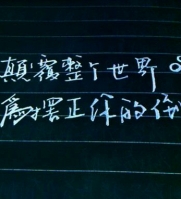 顛覆整个世界。
為擺正你的倒